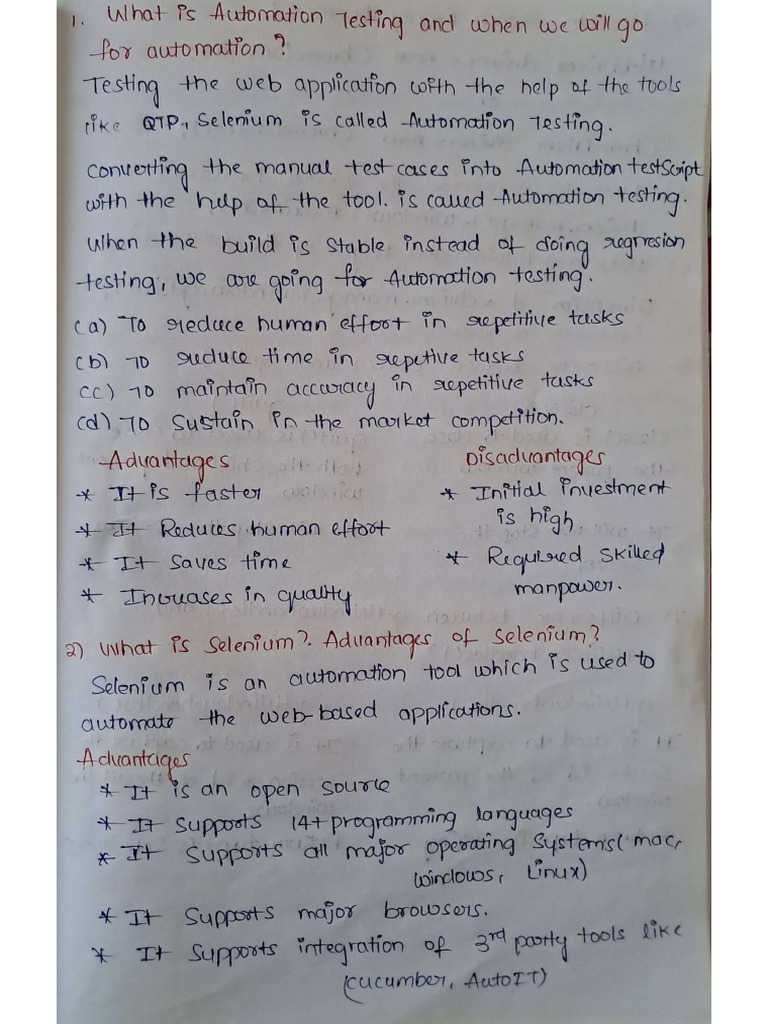 1. What is Automation Testing and when we will go
for automation?
Testing the web application with the help of the tools
like QTP, Selenium is called Automation Testing.
Converting the manual test cases into Automation testScript
with the help of the tool. is called Automation testing.
When the build is stable instead of doing regresion
testing, we are going for Automation testing.
(a) To reduce human effort in repetitive tasks
(b) To reduce time in repetive tasks
(c) To maintain accuracy in repetitive tasks
(d) To sustain in the market competition.
Advantages
* It is faster
* It Reduces human effort
* It saves time
* Increases in quality
Disadvantages
* Initial investment
is high
* Required skilled
manpower.
2) What is Selenium?. Advantages of Selenium?
Selenium is an automation tool which is used to
automate the web-based applications.
Advantages
* It is an open source
* It supports 14+ programming languages
* It supports all major operating systems( mac,
windows, Linux)
* It supports major browsers.
* It supports integration of 3rd party tools like
(cucumber, AutoIT)